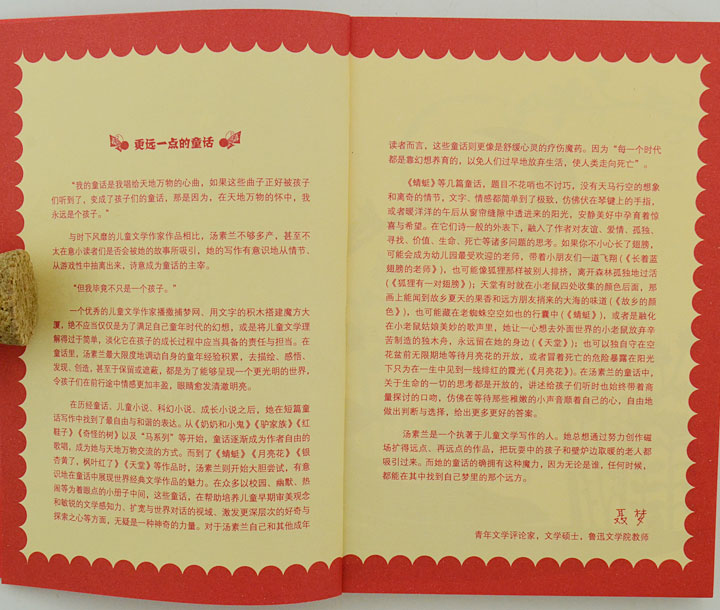 更远一点的童话
“我的童话是我唱给天地万物的心曲,如果这些曲子正好被孩子
们听到了,变成了孩子们的童话,那是因为,在天地万物的怀中,我
永远是个孩子。”
与时下风靡的儿童文学作家作品相比,汤素兰不够多产,甚至不
太在意小读者们是否会被她的故事所吸引,她的写作有意识地从情节、
从游戏性中抽离出来,诗意成为童话的主宰。
“但我毕竟不只是一个孩子。”
一个优秀的儿童文学作家播撒捕梦网、用文字的积木搭建魔方大
厦,绝不应当仅仅是为了满足自己童年时代的幻想,或是将儿童文学理
解得过于简单,淡化它在孩子的成长过程中应当具备的责任与担当。在
童话里,汤素兰最大限度地调动自身的童年经验积累,去描绘、感悟、
发现、创造,甚至于保留或遮蔽,都是为了能够呈现一个更光明的世界,
令孩子们在前行途中情感更加丰盈,眼睛愈发清澈明亮。
在历经童话、儿童小说、科幻小说、成长小说之后,她在短篇童
话写作中找到了最自由与和谐的表达。从《奶奶和小鬼》《驴家族》《红
鞋子》《奇怪的树》以及“马系列”等开始,童话逐渐成为作者自由的
歌唱,成为她与天地万物交流的方式。而到了《蜻蜓》《月亮花》《银
杏黄了,枫叶红了》《天堂》等作品时,汤素兰则开始大胆尝试,有意
识地在童话中展现世界经典文学作品的魅力。在众多以校园、幽默、热
闹等为着眼点的小册子中间,这些童话,在帮助培养儿童早期审美观念
和敏锐的文学感知力、扩宽与世界对话的视域、激发更深层次的好奇与
探索之心等方面,无疑是一种神奇的力量。对于汤素兰自己和其他成年
读者而言,这些童话则更像是舒缓心灵的疗伤魔药。因为“每一个时代
都是靠幻想养育的,以免人们过早地放弃生活,使人类走向死亡”。
《蜻蜓》等几篇童话,题目不花哨也不讨巧,没有天马行空的想象
和离奇的情节,文字、情感都简单到了极致,仿佛伏在琴键上的手指,
或者暖洋洋的午后从窗帘缝隙中透进来的阳光,安静美好中孕育着惊
喜与希望。在它们诗一般的外表下,融入了作者对友谊、爱情、孤独、
寻找、价值、生命、死亡等诸多问题的思考。如果你不小心长了翅膀,
可能会成为幼儿园最受欢迎的老师,带着小朋友们一道飞翔(《长着蓝
翅膀的老师》),也可能像狐狸那样被别人排挤,离开森林孤独地过活
(《狐狸有一对翅膀》);天堂有时就在小老鼠四处收集的颜色后面,那
画上能闻到故乡夏天的果香和远方朋友捎来的大海的味道(《故乡的颜
色》),也可能藏在老蜘蛛空空如也的行囊中(《蜻蜓》),或者是融化
在小老鼠姑娘美妙的歌声里,她让一心想去外面世界的小老鼠放弃辛
苦制造的独木舟,永远留在她的身边(《天堂》);也可以独自守在空
花盆前无限期地等待月亮花的开放,或者冒着死亡的危险暴露在阳光
下只为在一生中见到一线绯红的霞光(《月亮花》)。在汤素兰的童话中,
关于生命的一切的思考都是开放的,讲述给孩子们听时也始终带着商
量探讨的口吻,仿佛在等待那些稚嫩的小声音顺着自己的心,自由地
做出判断与选择,给出更多更好的答案。
汤素兰是一个执著于儿童文学写作的人。她总想通过努力创作磁
场扩得远点、再远点的作品,把玩耍中的孩子和壁炉边取暖的老人都
吸引过来。而她的童话的确拥有这种魔力,因为无论是谁,任何时候,
都能在其中找到自己梦里的那个远方。
聂梦
青年文学评论家,文学硕士,鲁迅文学院教师